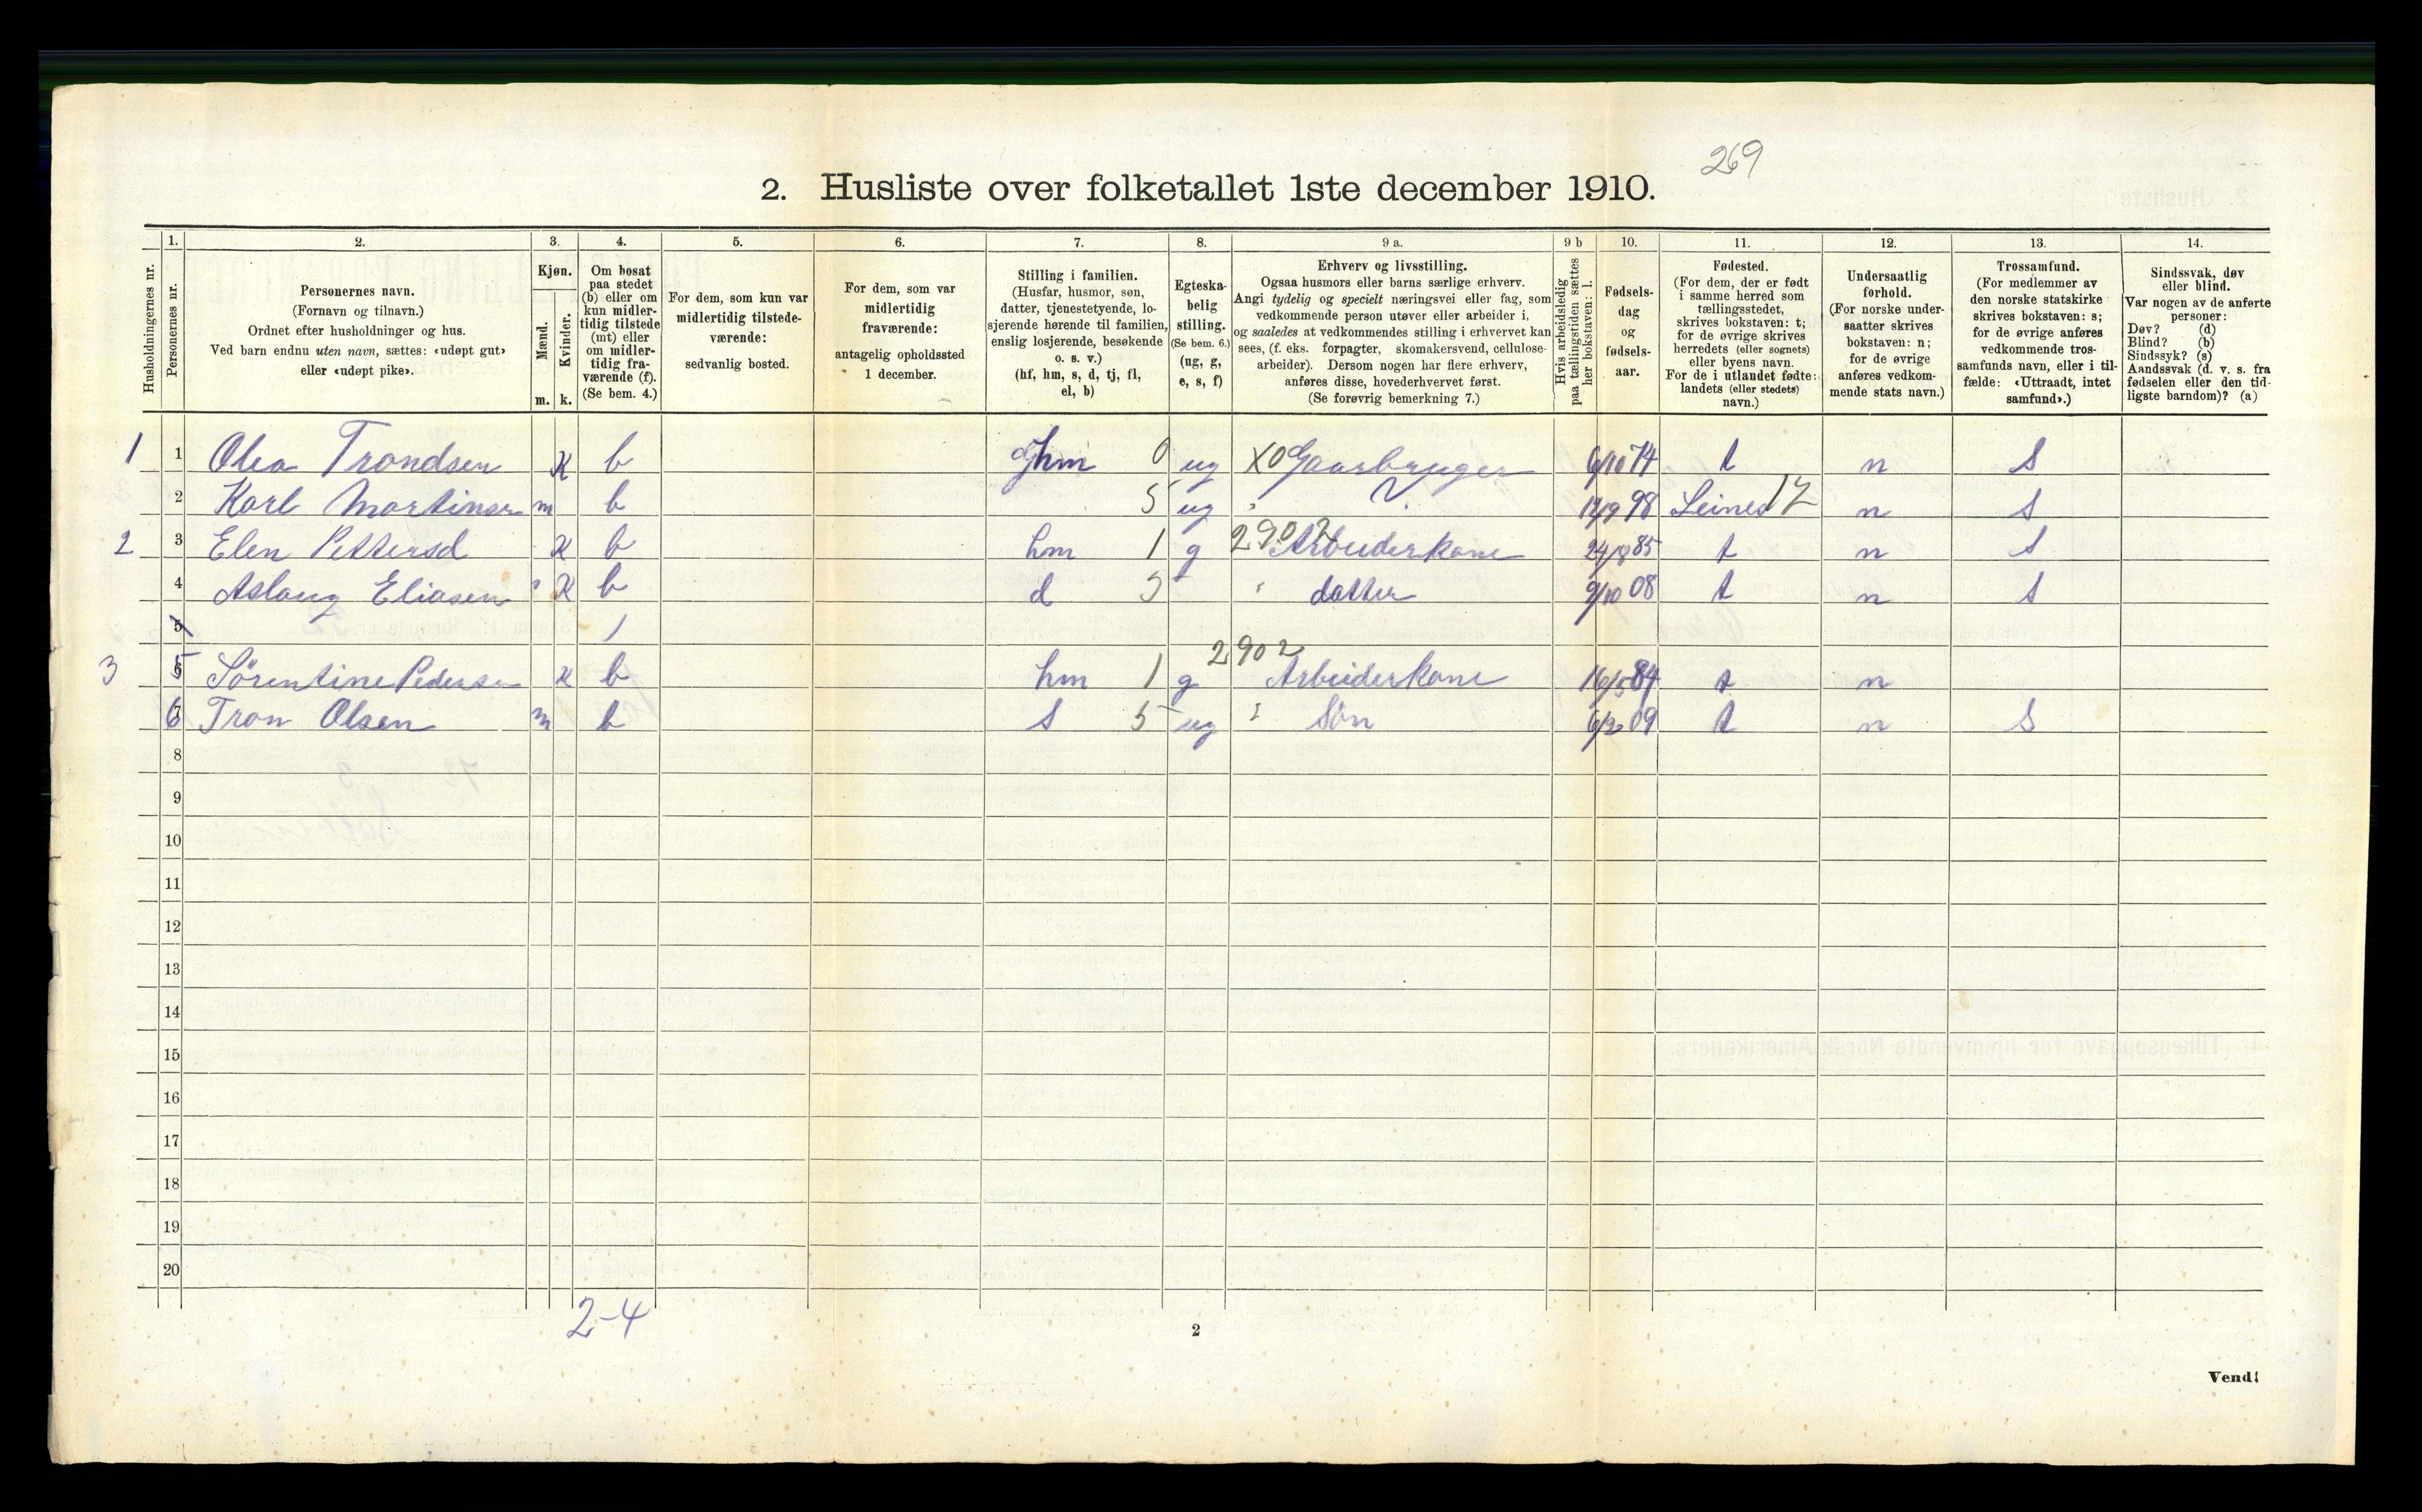 269
2. Husliste over folketallet 1ste december 1910.
Husholdningernes nr.
1. Personernes nr.
2. Personernes navn.
(Fornavn og tilnavn.)
Ordnet efter husholdninger og hus.
Ved barn endnu uten navn, sættes: «udøpt gut»
eller «udøpt pike».
3. Kjøn.
Mænd. Kvinder.
m. k.
4. Om bosat
paa stedet
(b) eller om
kun midler-
tidig tilstede
(mt) eller
om midler-
tidig fra-
værende (f).
(Se bem. 4.)
5. For dem, som kun var
midlertidig tilstede-
værende:
sedvanlig bosted.
6. For dem, som var
midlertidig
fraværende:
antagelig opholdssted
1 december.
7. Stilling i familien.
(Husfar, husmor, søn,
datter, tjenestetyende, lo-
sjerende hørende til familien,
enslig losjerende, besøkende
o. s. v.)
(hf, hm, s, d, tj, fl,
el, b)
8. Egteska-
belig
stilling.
(Se bem. 6.)
(ug, g,
e, s, f)
9 a. Erhverv og livsstilling.
Ogsaa husmors eller barns særlige erhverv.
Angi tydelig og specielt næringsvei eller fag, som
vedkommende person utøver eller arbeider i,
og saaledes at vedkommendes stilling i erhvervet kan
sees, (f. eks. forpagter, skomakersvend, cellulose-
arbeider). Dersom nogen har flere erhverv,
anføres disse, hovederhvervet først.
(Se forøvrig bemerkning 7.)
9 b Hvis arbeidsledig
paa tællingstiden sættes
her bokstaven: l.
10. Fødsels-
dag
og
fødsels-
aar.
11. Fødested.
(For dem, der er født
i samme herred som
tællingsstedet,
skrives bokstaven: t;
for de øvrige skrives
herredets (eller sognets)
eller byens navn.
For de i utlandet fødte:
landets (eller stedets)
navn.)
12. Undersaatlig
forhold.
(For norske under-
saatter skrives
bokstaven: n;
for de øvrige
anføres vedkom-
mende stats navn.)
13. Trossamfund.
(For medlemmer av
den norske statskirke
skrives bokstaven: s;
for de øvrige anføres
vedkommende tros-
samfunds navn, eller i til-
fælde: «Uttraadt, intet
samfund».)
14. Sindssvak, døv
eller blind.
Var nogen av de anførte
personer:
Døv? (d)
Blind? (b)
Sindssyk? (s)
Aandssvak (d. v. s. fra
fødselen eller den tid-
ligste barndom)? (a)
1 1 Olea Trondsen K b hm 0 ug X0 Gaarbruger 6/10 74 t n s
2 Karl Martinsen m b 5 ug 98 Leines 17 n s
2 3 Elen Pettersd K b hm 1 g 2902 Arbeiderkone 85 t n s
4 Aslaug Eliasen K b d 5 datter 9/10 08 t n s
5
3 5 Sörentine Pedersen K b hm 1 g 2902 Arbeiderkone 16/5 84 t n
6 Tron Olsen m b s 5 ug Sön 6/2 09 t n s
8
9
10
11
12
13
14
15
16
17
18
19
20
2-4
2
Vend!